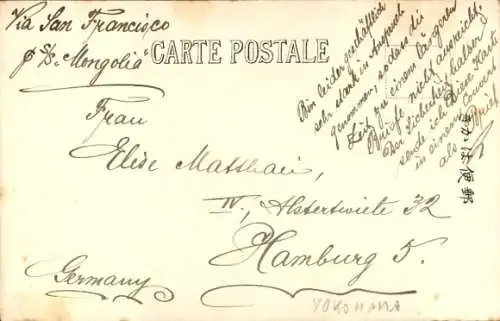 Via San Francisco
p s/s "Mongolia"
CARTE POSTALE
Bin leider geschäftlich
sehr stark in Anspruch
genommen, sodass die
Zeit zu einem längeren
Briefe nicht ausreicht.
Der Sicherheit halber
sende ich diese Karte
in einem Couvert
als Brief
きかは便郵
Frau
Elise Matthaei,
IV, Alstertwiete 32
Hamburg 5.
Germany
YOKOHAMA